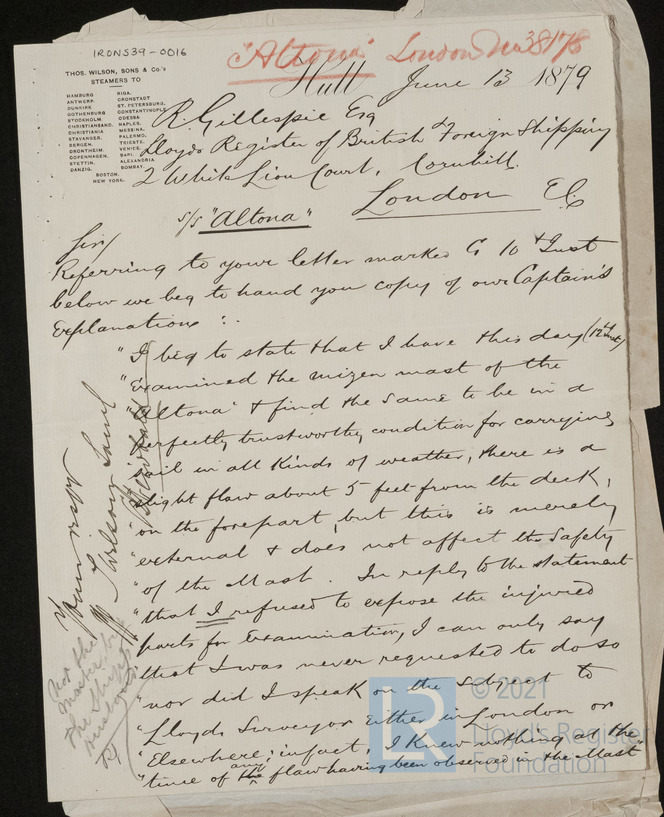 IRONS39-0016
"Altona" London
THOS. WILSON, SONS & Co.'s
STEAMERS TO
HAMBURG RIGA.
ANTWERP. CRONSTADT
DUNKIRK ST. PETERSBURG.
GOTHENBURG CONSTANTINOPLE
STOCKHOLM ODESSA.
CHRISTIANSAND, NAPLES.
CHRISTIANIA MESSINA.
STAVANGER. PALERMO.
BERGEN. TRIESTE.
DRONTHEIM. VENICE.
COPENHAGEN. BARI.
STETTIN. ALEXANDRIA.
DANZIG. BOMBAY.
BOSTON.
NEW YORK.
Hull June 13 1879
R. Gillespie Esq
Lloyds Register of British & Foreign Shipping
2 White Lion Court, Cornhill.
London E.C
s/s "Altona"
Sir/
Referring to your letter marked G 10th Inst
below we beg to hand you copy of our Captain's
Explanations :-
"I beg to state that I have this day (12th Inst)
"Examined the mizen mast of the
"Altona" & find the same to be in a
perfectly trustworthy condition for carrying
sail in all kinds of weather, there is a
slight flaw about 5 feet from the deck,
"on the forepart, but this is merely
"external & does not affect the safety
"of the Mast. In reply to the statement
"that I refused to expose the injured
parts for Examination, I can only say
"that I was never requested to do so
"nor did I speak on the subject to
"Lloyds Surveyor either in London or
"Elsewhere; in fact, I knew nothing at the
"time of any flaw having been observed in the Mast"
Thos Wilson Sons
Not the
Master, but
the Ship's
husband
© 2021
Lloyd's Register
Foundation
LR